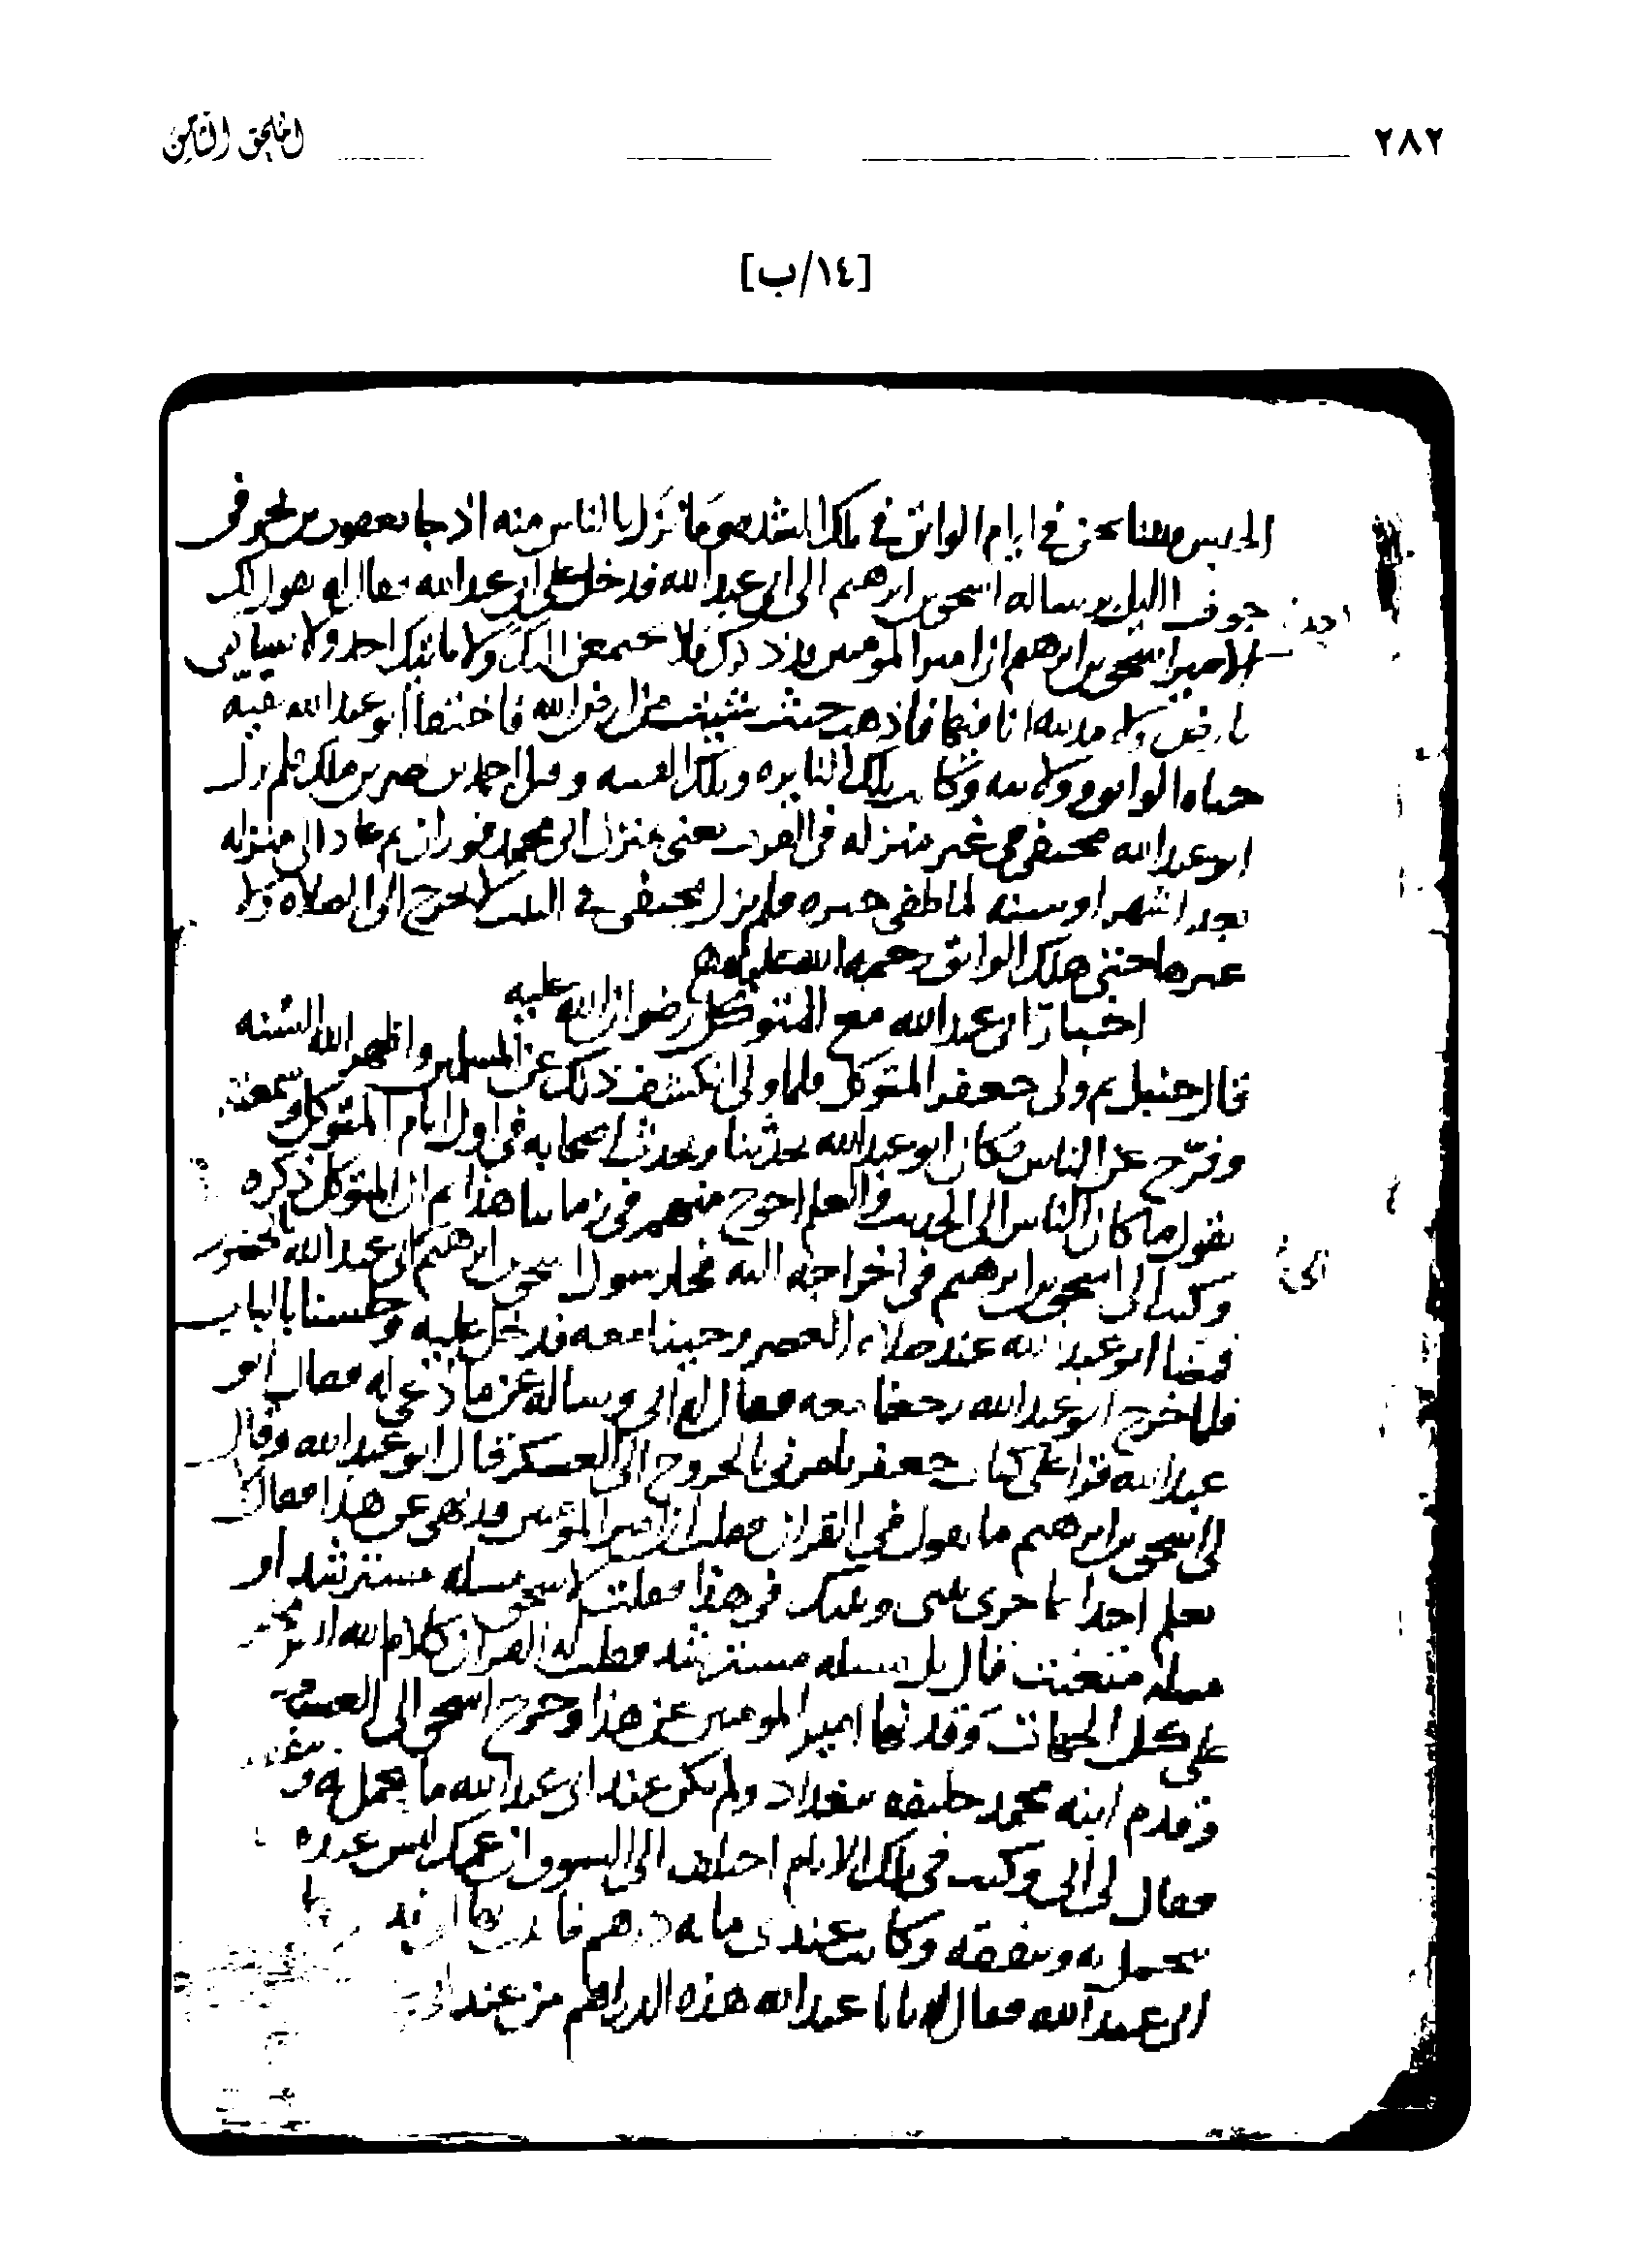 ٢٨٢
الملحق الثامن
[١٤/ب]
الحبس فبينا نحن في ايام الواثق في تلك الشده وما نزل بالناس منه اذ جا يعقوب بن بحر في
جوف الليل برساله اسحق بن ابرهيم الى ابي عبد الله فدخل على ابي عبد الله فقال له يقول لك
الامير اسحق بن ابرهيم ان امير المومنين قد ذكرك فلا يجتمعن اليك ولا ياتيك احد ولا تساكني
بارض ولا مدينه انا فيها فاذهب حيث شيت من ارض الله فاختفا ابو عبد الله بقيه
حياه الواثق وولايته وكانت تلك النايره وتلك الفتنه وقتل احمد بن نصر بن ملك فلم يزل
ابو عبد الله مختفي في غير منزله في القرب يعني منزل ابي محمد فوران ثم عاد الى منزله
بعد اشهر او سنه لما طفى خبره فلم يزل مختفي في البيت لا يخرج الى الصلاه ولا
غيرها حتى هلك الواثق
اخبار ابي عبد الله مع المتوكل رضوان الله عليه
قال حنبل ثم ولى جعفر المتوكل فلما ولى انكشف ذلك عن المسلمين واظهر الله السنه
وفرج عن الناس فكان ابو عبد الله يحدثنا ويحدث اصحابه في اول ايام المتوكل وسمعته
يقول ما كان الناس الى الحديث والعلم احوج منهم في زماننا هذا ثم ان المتوكل ذكره
وكتب الى اسحق بن ابرهيم في اخراجه اليه فجا رسول اسحق بن ابرهيم الى ابي عبد الله بالحضور
فمضا ابو عبد الله عند صلاه العصر وجينا معه فدخل عليه وجلسنا بالباب
فلما خرج ابو عبد الله رجعنا معه فقال له ابي وساله عن ما دعي له فقال ابو
عبد الله قرا علي كتاب جعفر يامرني بالخروج الى العسكر قال ابو عبد الله وقال
لي اسحق بن ابرهيم ما تقول في القران فقلت ان امير المومنين قد نهى عن هذا فقال لا
تعلم احدا بما جرى بيني وبينك في هذا فقلت لاسحق مسله مسترشد او
مسله متعنت قال بل مسله مسترشد فقلت له القران كلام الله ليس مخلوق
على كل الجهات وقد نها امير المومنين عن هذا وخرج اسحق الى العسكر
وقدم ابنه محمد خليفه ببغداد ولم يكن عند ابي عبد الله ما يحمل به و
فقال لي ابي وكنت في تلك الايام اختلف الى السوق ان عمك ليس عنده ما
يتحمل به وينفقه وكانت عندي مايه درهم
ابي عبد الله فقال له يابا عبد الله هذه الدراهم من عند